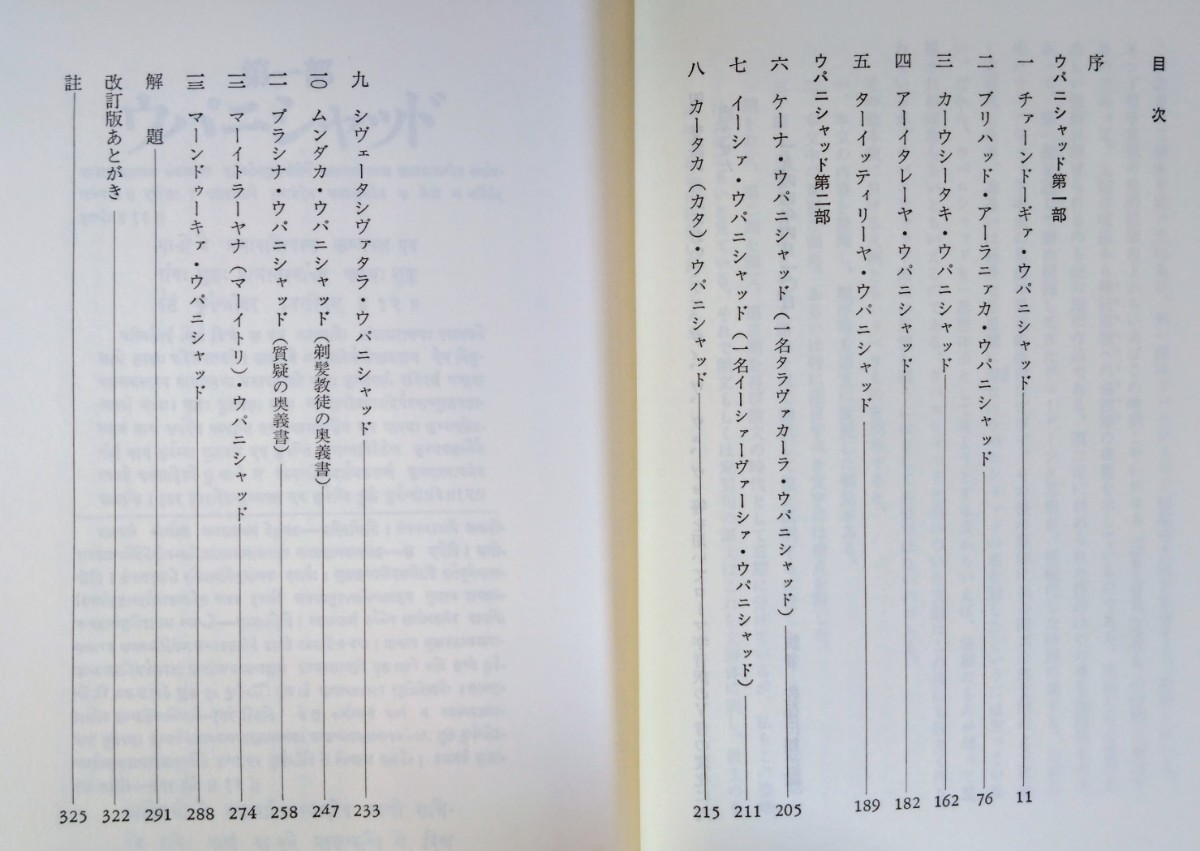 目次
序
ウパニシャッド第一部
一 チァーンドーギァ・ウパニシャッド 11
二 ブリハッド・アーラニァカ・ウパニシャッド 76
三 カーウシータキ・ウパニシャッド 162
四 アーイタレーヤ・ウパニシャッド 182
五 ターイッティリーヤ・ウパニシャッド 189
ウパニシャッド第二部
六 ケーナ・ウパニシャッド(一名タラヴァカーラ・ウパニシャッド) 205
七 イーシァ・ウパニシャッド(一名イーシァーヴァーシァ・ウパニシャッド) 211
八 カータカ(カタ)・ウパニシャッド 215
九 シヴェータシヴァタラ・ウパニシャッド 233
一〇 ムンダカ・ウパニシャッド(剃髪教徒の奥義書) 247
一一 プラシナ・ウパニシャッド(質疑の奥義書) 258
一二 マーイトラーヤナ(マーイトリ)・ウパニシャッド 274
一三 マーンドゥーキァ・ウパニシャッド 288
解題 291
改訂版あとがき 322
註 325